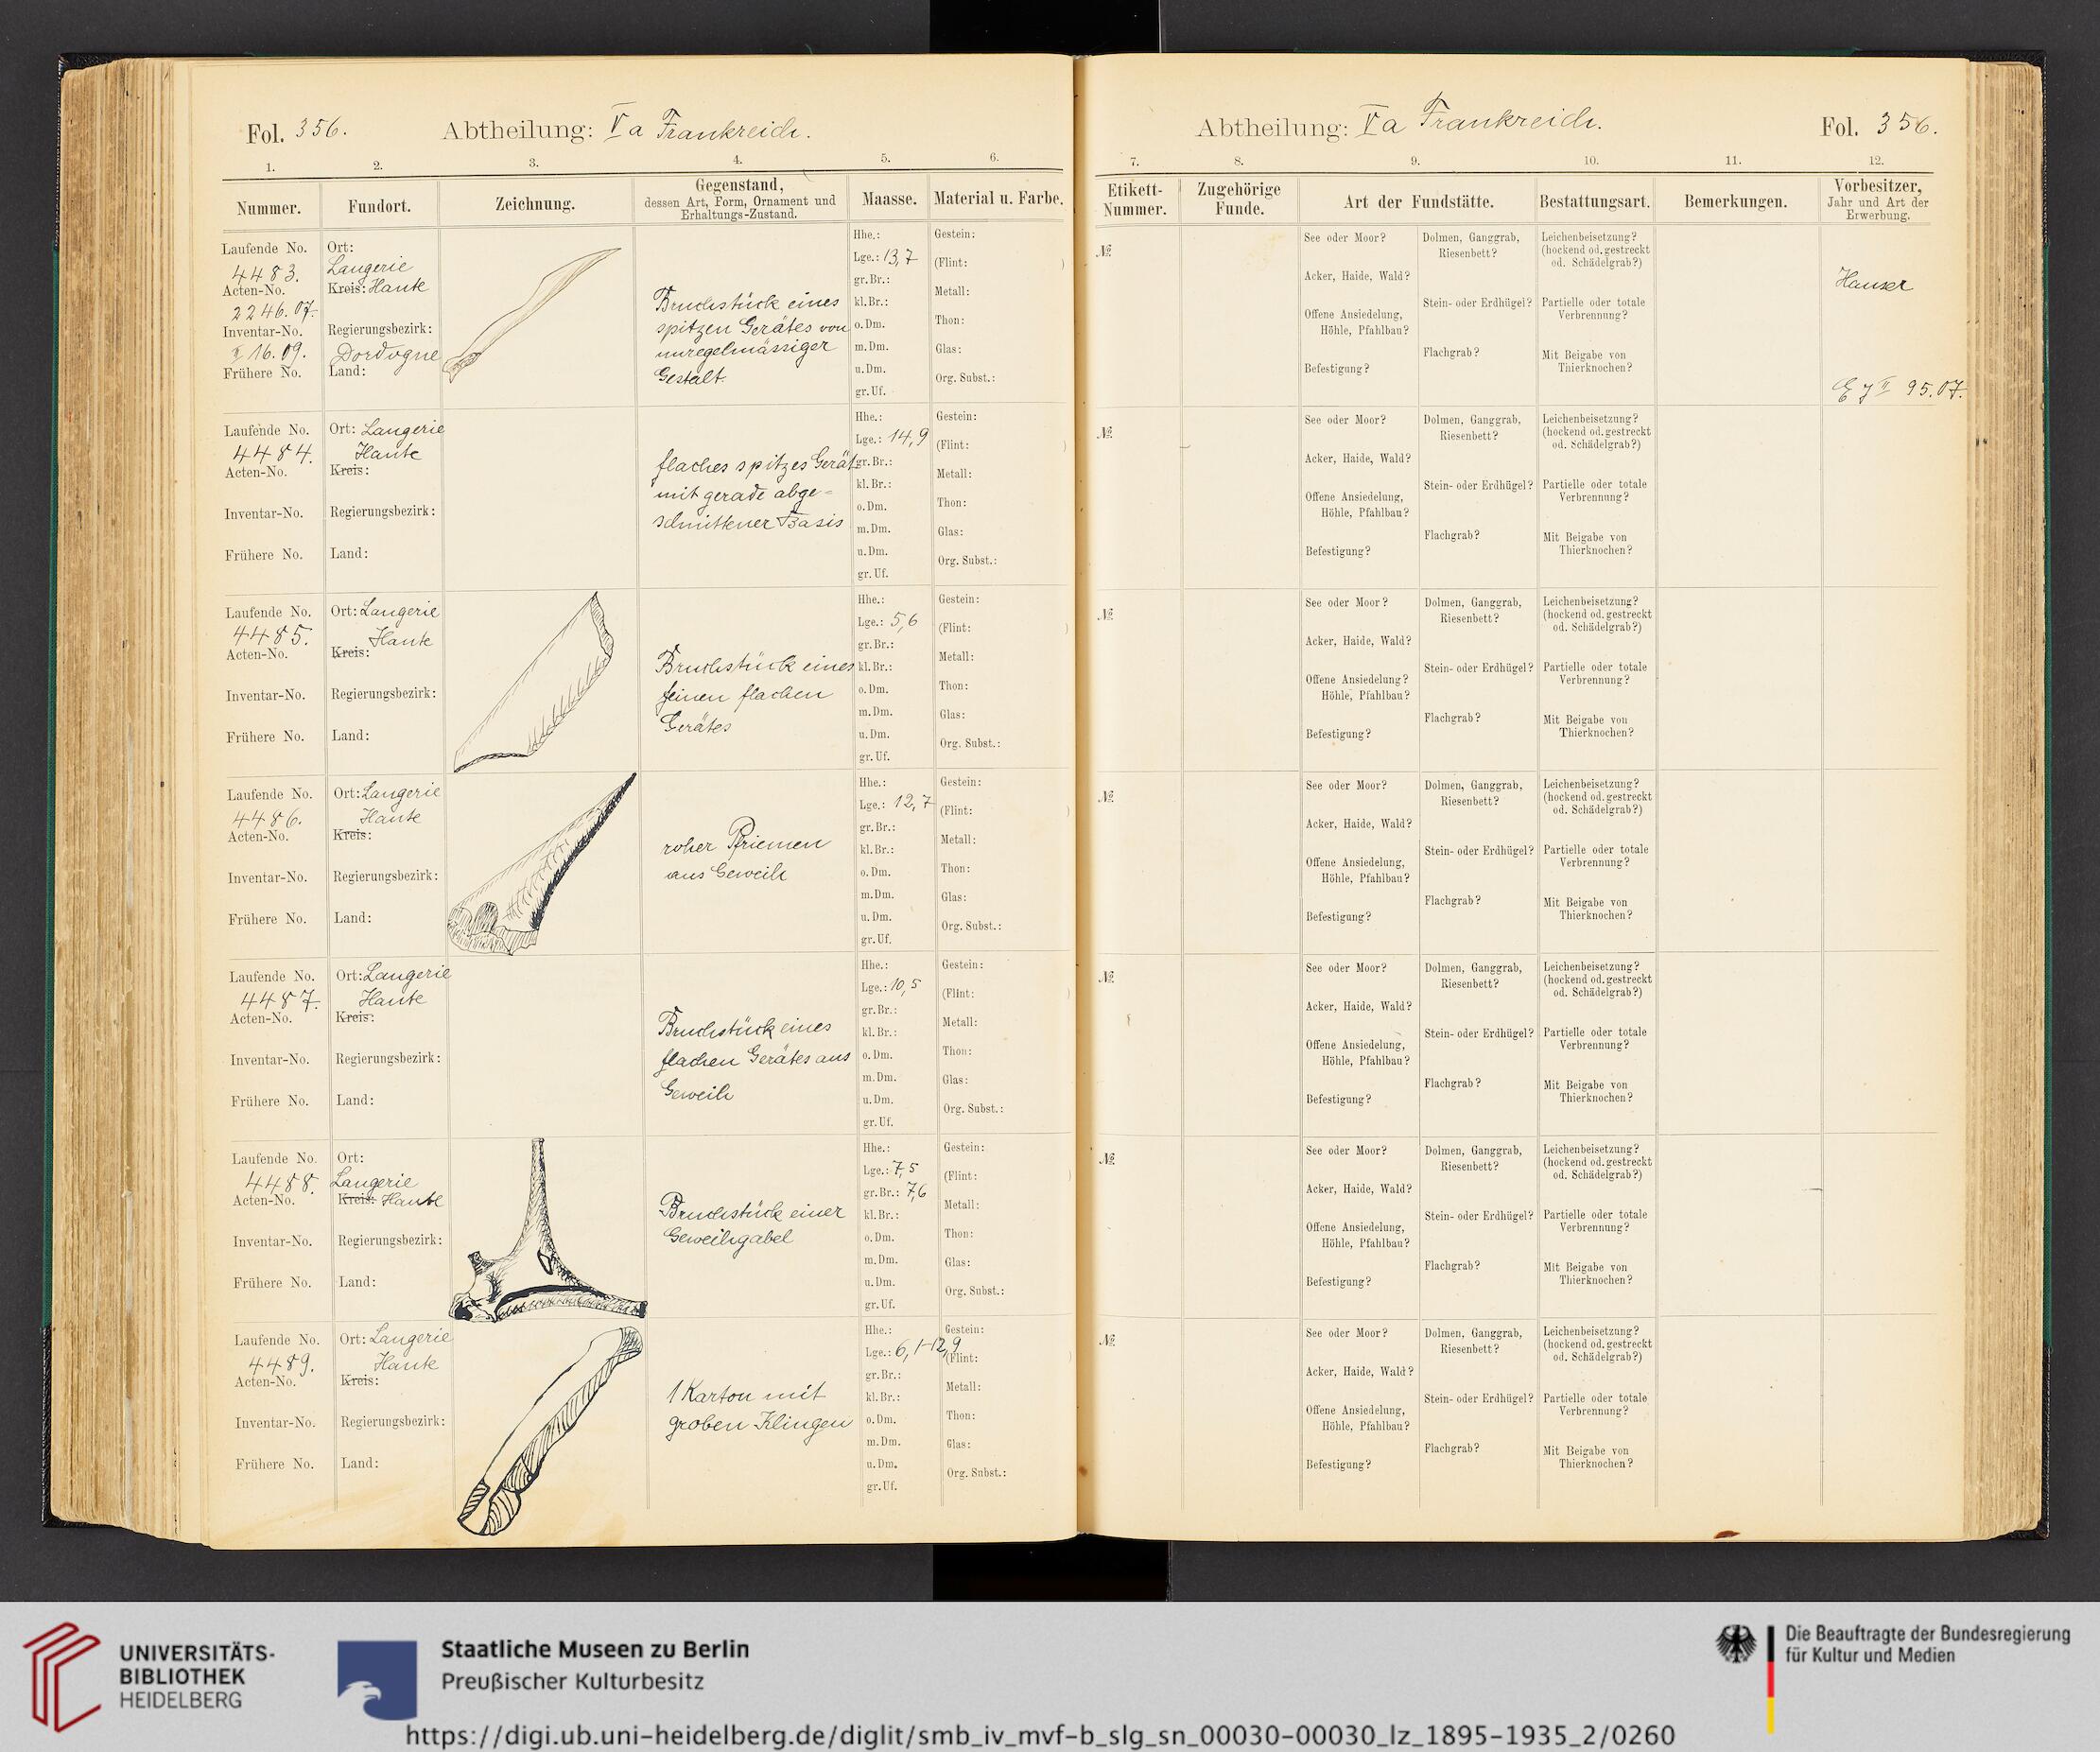 Fol. 356.
Abtheilung: Va Frankreich.
1. 2. 3. 4. 5. 6.
Nummer.
Fundort.
Zeichnung.
Gegenstand,
dessen Art, Form, Ornament und
Erhaltungs-Zustand.
Maasse.
Material u. Farbe.
Laufende No.
4483.
Acten-No.
2246.07.
Inventar-No.
II 16.09.
Frühere No.
Ort:
Laugerie
Kreis: Haute
Regierungsbezirk:
Dordogne
Land:
Bruchstück eines
spitzen Gerätes von
unregelmässiger
Gestalt.
Hhe.:
Lge.: 13,7
gr. Br.:
kl. Br.:
o. Dm.
m. Dm.
u. Dm.
gr. Uf.
Gestein:
(Flint: )
Metall:
Thon:
Glas:
Org. Subst.:
Laufende No.
4484.
Acten-No.
Inventar-No.
Frühere No.
Ort: Laugerie
Haute
Kreis:
Regierungsbezirk:
Land:
flaches spitzes Gerät
mit gerade abge-
schnittener Basis
Hhe.:
Lge.: 14,9
gr. Br.:
kl. Br.:
o. Dm.
m. Dm.
u. Dm.
gr. Uf.
Gestein:
(Flint: )
Metall:
Thon:
Glas:
Org. Subst.:
Laufende No.
4485.
Acten-No.
Inventar-No.
Frühere No.
Ort: Laugerie
Haute
Kreis:
Regierungsbezirk:
Land:
Bruchstück eines
feinen flachen
Gerätes
Hhe.:
Lge.: 5,6
gr. Br.:
kl. Br.:
o. Dm.
m. Dm.
u. Dm.
gr. Uf.
Gestein:
(Flint: )
Metall:
Thon:
Glas:
Org. Subst.:
Laufende No.
4486.
Acten-No.
Inventar-No.
Frühere No.
Ort: Laugerie
Haute
Kreis:
Regierungsbezirk:
Land:
roher Pfriemen
aus Geweih
Hhe.:
Lge.: 12,7
gr. Br.:
kl. Br.:
o. Dm.
m. Dm.
u. Dm.
gr. Uf.
Gestein:
(Flint: )
Metall:
Thon:
Glas:
Org. Subst.:
Laufende No.
4487.
Acten-No.
Inventar-No.
Frühere No.
Ort: Laugerie
Haute
Kreis:
Regierungsbezirk:
Land:
Bruchstück eines
flachen Gerätes aus
Geweih
Hhe.:
Lge.: 10,5
gr. Br.:
kl. Br.:
o. Dm.
m. Dm.
u. Dm.
gr. Uf.
Gestein:
(Flint: )
Metall:
Thon:
Glas:
Org. Subst.:
Laufende No.
4488.
Acten-No.
Inventar-No.
Frühere No.
Ort:
Laugerie
Kreis: Haute
Regierungsbezirk:
Land:
Bruchstück einer
Geweihgabel
Hhe.:
Lge.: 7,5
gr. Br.: 7,6
kl. Br.:
o. Dm.
m. Dm.
u. Dm.
gr. Uf.
Gestein:
(Flint: )
Metall:
Thon:
Glas:
Org. Subst.:
Laufende No.
4489.
Acten-No.
Inventar-No.
Frühere No.
Ort: Laugerie
Haute
Kreis:
Regierungsbezirk:
Land:
1 Karton mit
groben Klingen
Hhe.:
Lge.: 6,1-12,9
gr. Br.:
kl. Br.:
o. Dm.
m. Dm.
u. Dm.
gr. Uf.
Gestein:
(Flint: )
Metall:
Thon:
Glas:
Org. Subst.:
Abtheilung: Va Frankreich.
Fol. 356.
7. 8. 9. 10. 11. 12.
Etikett-
Nummer.
Zugehörige
Funde.
Art der Fundstätte.
Bestattungsart.
Bemerkungen.
Vorbesitzer,
Jahr und Art der
Erwerbung.
№
See oder Moor?
Acker, Haide, Wald?
Offene Ansiedelung,
Höhle, Pfahlbau?
Befestigung?
Dolmen, Ganggrab,
Riesenbett?
Stein- oder Erdhügel?
Flachgrab?
Leichenbeisetzung?
(hockend od. gestreckt
od. Schädelgrab?)
Partielle oder totale
Verbrennung?
Mit Beigabe von
Thierknochen?
Hauser
E J II 95.07.
№
See oder Moor?
Acker, Haide, Wald?
Offene Ansiedelung,
Höhle, Pfahlbau?
Befestigung?
Dolmen, Ganggrab,
Riesenbett?
Stein- oder Erdhügel?
Flachgrab?
Leichenbeisetzung?
(hockend od. gestreckt
od. Schädelgrab?)
Partielle oder totale
Verbrennung?
Mit Beigabe von
Thierknochen?
№
See oder Moor?
Acker, Haide, Wald?
Offene Ansiedelung?
Höhle, Pfahlbau?
Befestigung?
Dolmen, Ganggrab,
Riesenbett?
Stein- oder Erdhügel?
Flachgrab?
Leichenbeisetzung?
(hockend od. gestreckt
od. Schädelgrab?)
Partielle oder totale
Verbrennung?
Mit Beigabe von
Thierknochen?
№
See oder Moor?
Acker, Haide, Wald?
Offene Ansiedelung,
Höhle, Pfahlbau?
Befestigung?
Dolmen, Ganggrab,
Riesenbett?
Stein- oder Erdhügel?
Flachgrab?
Leichenbeisetzung?
(hockend od. gestreckt
od. Schädelgrab?)
Partielle oder totale
Verbrennung?
Mit Beigabe von
Thierknochen?
№
See oder Moor?
Acker, Haide, Wald?
Offene Ansiedelung,
Höhle, Pfahlbau?
Befestigung?
Dolmen, Ganggrab,
Riesenbett?
Stein- oder Erdhügel?
Flachgrab?
Leichenbeisetzung?
(hockend od. gestreckt
od. Schädelgrab?)
Partielle oder totale
Verbrennung?
Mit Beigabe von
Thierknochen?
№
See oder Moor?
Acker, Haide, Wald?
Offene Ansiedelung,
Höhle, Pfahlbau?
Befestigung?
Dolmen, Ganggrab,
Riesenbett?
Stein- oder Erdhügel?
Flachgrab?
Leichenbeisetzung?
(hockend od. gestreckt
od. Schädelgrab?)
Partielle oder totale
Verbrennung?
Mit Beigabe von
Thierknochen?
№
See oder Moor?
Acker, Haide, Wald?
Offene Ansiedelung,
Höhle, Pfahlbau?
Befestigung?
Dolmen, Ganggrab,
Riesenbett?
Stein- oder Erdhügel?
Flachgrab?
Leichenbeisetzung?
(hockend od. gestreckt
od. Schädelgrab?)
Partielle oder totale
Verbrennung?
Mit Beigabe von
Thierknochen?
UNIVERSITÄTS-
BIBLIOTHEK
HEIDELBERG
Staatliche Museen zu Berlin
Preußischer Kulturbesitz
Die Beauftragte der Bundesregierung
für Kultur und Medien
https://digi.ub.uni-heidelberg.de/diglit/smb_iv_mvf-b_slg_sn_00030-00030_lz_1895-1935_2/0260